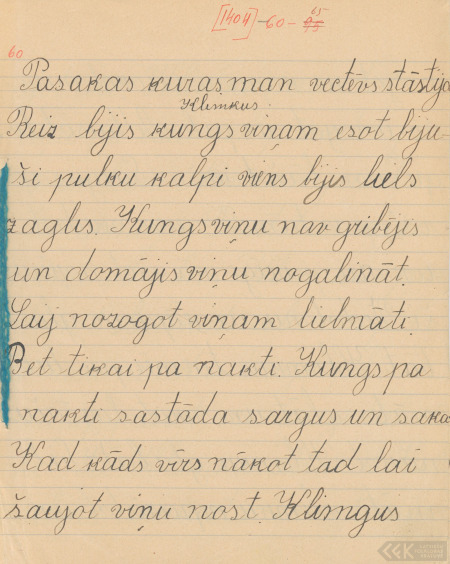 [1404] - 60 - 65
60
Pasakas kuras man vectēvs stāstija
Klimkus.
Reiz bijis kungs viņam esot biju-
ši pulku kalpi viens bijis liels
zaglis. Kungs viņu nav gribējis
un domājis viņu nogalināt.
Laij nozogot viņam lielmāti.
Bet tikai pa nakti. Kungs pa
nakti sastāda sargus un saka
Kad kāds vīrs nākot tad lai
šaujot viņu nost. Klimgus